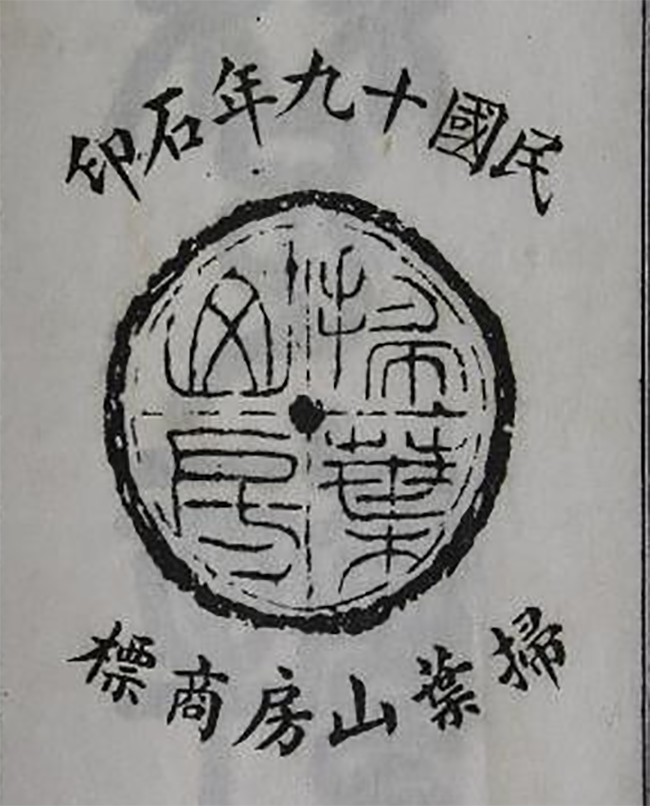 民國十九年石印
掃葉
山房
掃葉山房商標